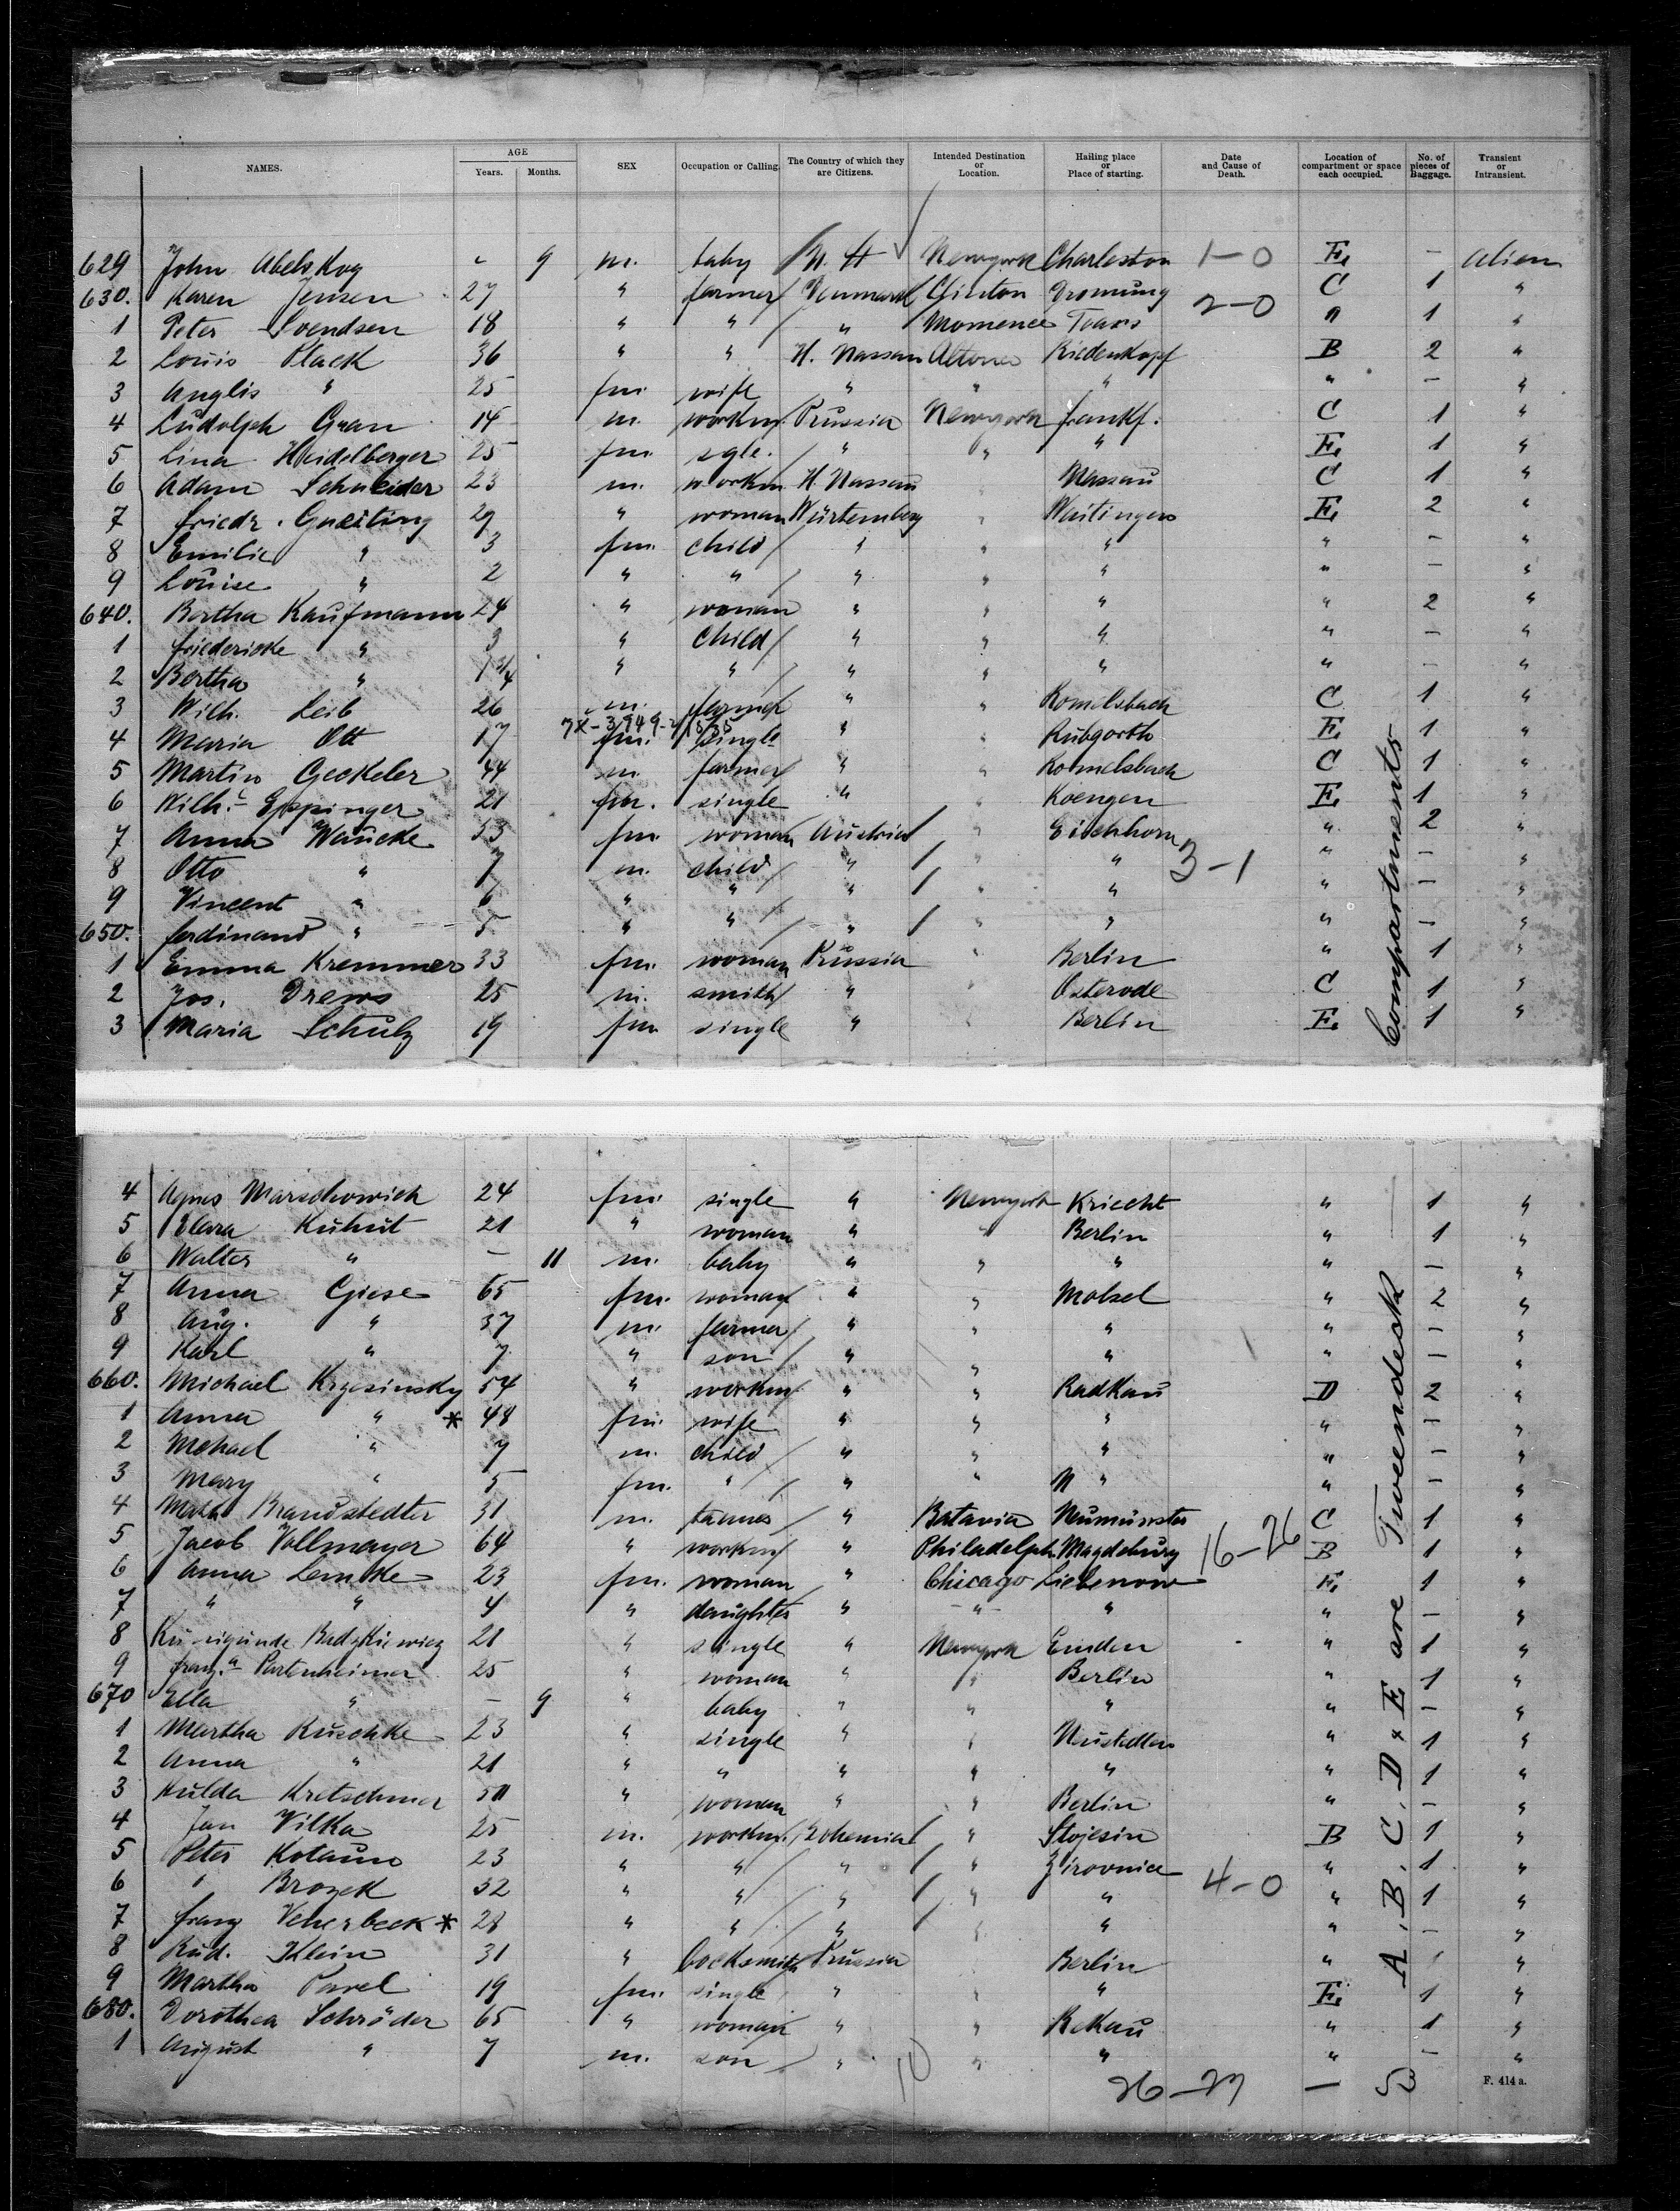 NAMES. AGE Years. Months. SEX Occupation or Calling. The Country of which they are Citizens. Intended Destination or Location. Hailing place or Place of starting. Date and Cause of Death. Location of compartment or space each occupied. No. of pieces of Baggage. Transient or Intransient.
629 John Abelskog - 9 m. baby Newyork Charleston 1-0 E. - alien
630. Karen Jensen 27 " farmer Denmark Clinton 2-0 C 1 "
1 Peter Svendsen 18 " " " Momence " 1 "
2 Louis Plack 36 " " H. Nassau Altona Biedenkopf B 2 "
3 Anglis " 25 fm. wife " " " " - "
4 Ludolph Gran 14 m. workm. Prussia Newyork Frankf. C 1 "
5 Lina Heidelberger 25 fm. sgle. " " " E. 1 "
6 Adam Schneider 23 m. workm H. Nassau " Nassau C 1 "
7 Friedr. Gueiting 29 " woman Würtemberg " E. 2 "
8 Emilie " 3 fm. child " " " " - "
9 Louise " 2 " " " " " " - "
640. Bertha Kaufmann 24 " woman " " " " 2 "
1 Friedericke " 3 " child " " " " - "
2 Bertha " 1 3/4 " " " " " " - "
3 Wilh. Leib 26 m. farmer " " Romelsbach C 1 "
7X-3949-
4 Maria Ott 17 fm. single " " E. 1 "
5 Martin Geckeler 44 m. farmer " " Romelsbach C 1 "
6 Wilh.e Eppinger 21 fm. single " " Koengen E. 1 "
7 Anna Waucke 53 fm. woman Austria " Eichhorn " 2 "
8 Otto " 7 m. child " " " 3-1 " - "
9 Vincent " 6 " " " " " " - "
650. Ferdinand " 5 " " " " " " - "
1 Emma Kremmer 33 fm. woman Prussia " Berlin " 1 "
2 Jos. Drews 25 m. smith " " Osterode C 1 "
3 Maria Schulz 19 fm. single " " Berlin E. 1 "
4 Agnes Marschowich 24 fm. single " Newyork Kriecht " 1 "
5 Clara Kuhut 21 " woman " " Berlin " 1 "
6 Walter " - 11 m. baby " " " " - "
7 Anna Giese 65 fm. woman " " Molsel " 2 "
8 Aug. " 37 m. farmer " " " " - "
9 Karl " 7 " son " " " " - "
660. Michael Krzesinsky 54 " workm " " Radkau D 2 "
1 Anna " * 48 fm. wife " " " " - "
2 Mchael " 7 m. child " " " " - "
3 Mary " 5 fm. " " " " " - "
4 Brandstedter 31 m. " Batavia Neumünster C 1 "
5 Jacob Vollmayer 64 " workm " Philadelph. Magdeburg 16-26 B 1 "
6 Anna Lemcke 23 fm. woman " Chicago Liebenow E. 1 "
7 " " 4 " daughter " " " " - "
8 Kunigunde Badzkiewicz 21 " single " Newyork Emden " 1 "
9 Franz.a Partenheimer 25 " woman " " Berlin " 1 "
670 Ella " - 9 " baby " " " " - "
1 Martha Ruschke 23 " single " " Neustedten " 1 "
2 Anna " 21 " " " " " " 1 "
3 Hulda Kretschmer 50 " woman " " Berlin " - "
4 Jan Vilka 25 m. workm. Bohemia " Stojesin B 1 "
5 Peter Kolauno 23 " " " " Zirovnice " 1 "
6 " Brozek 32 " " " " " 4-0 " 1 "
7 Franz Veherbeck * 28 " " " " " " - "
8 Rud. Klein 31 " locksmith Prussia Berlin " 1 "
9 Martha Pavel 19 fm. single " " E. 1 "
680. Dorothea Schröder 65 " woman " " Rekau " 1 "
1 August " 7 m. son " " " " - "
10 26-27 -
A, B, C, D & E are Tweendeck Compartments
F. 414 a.